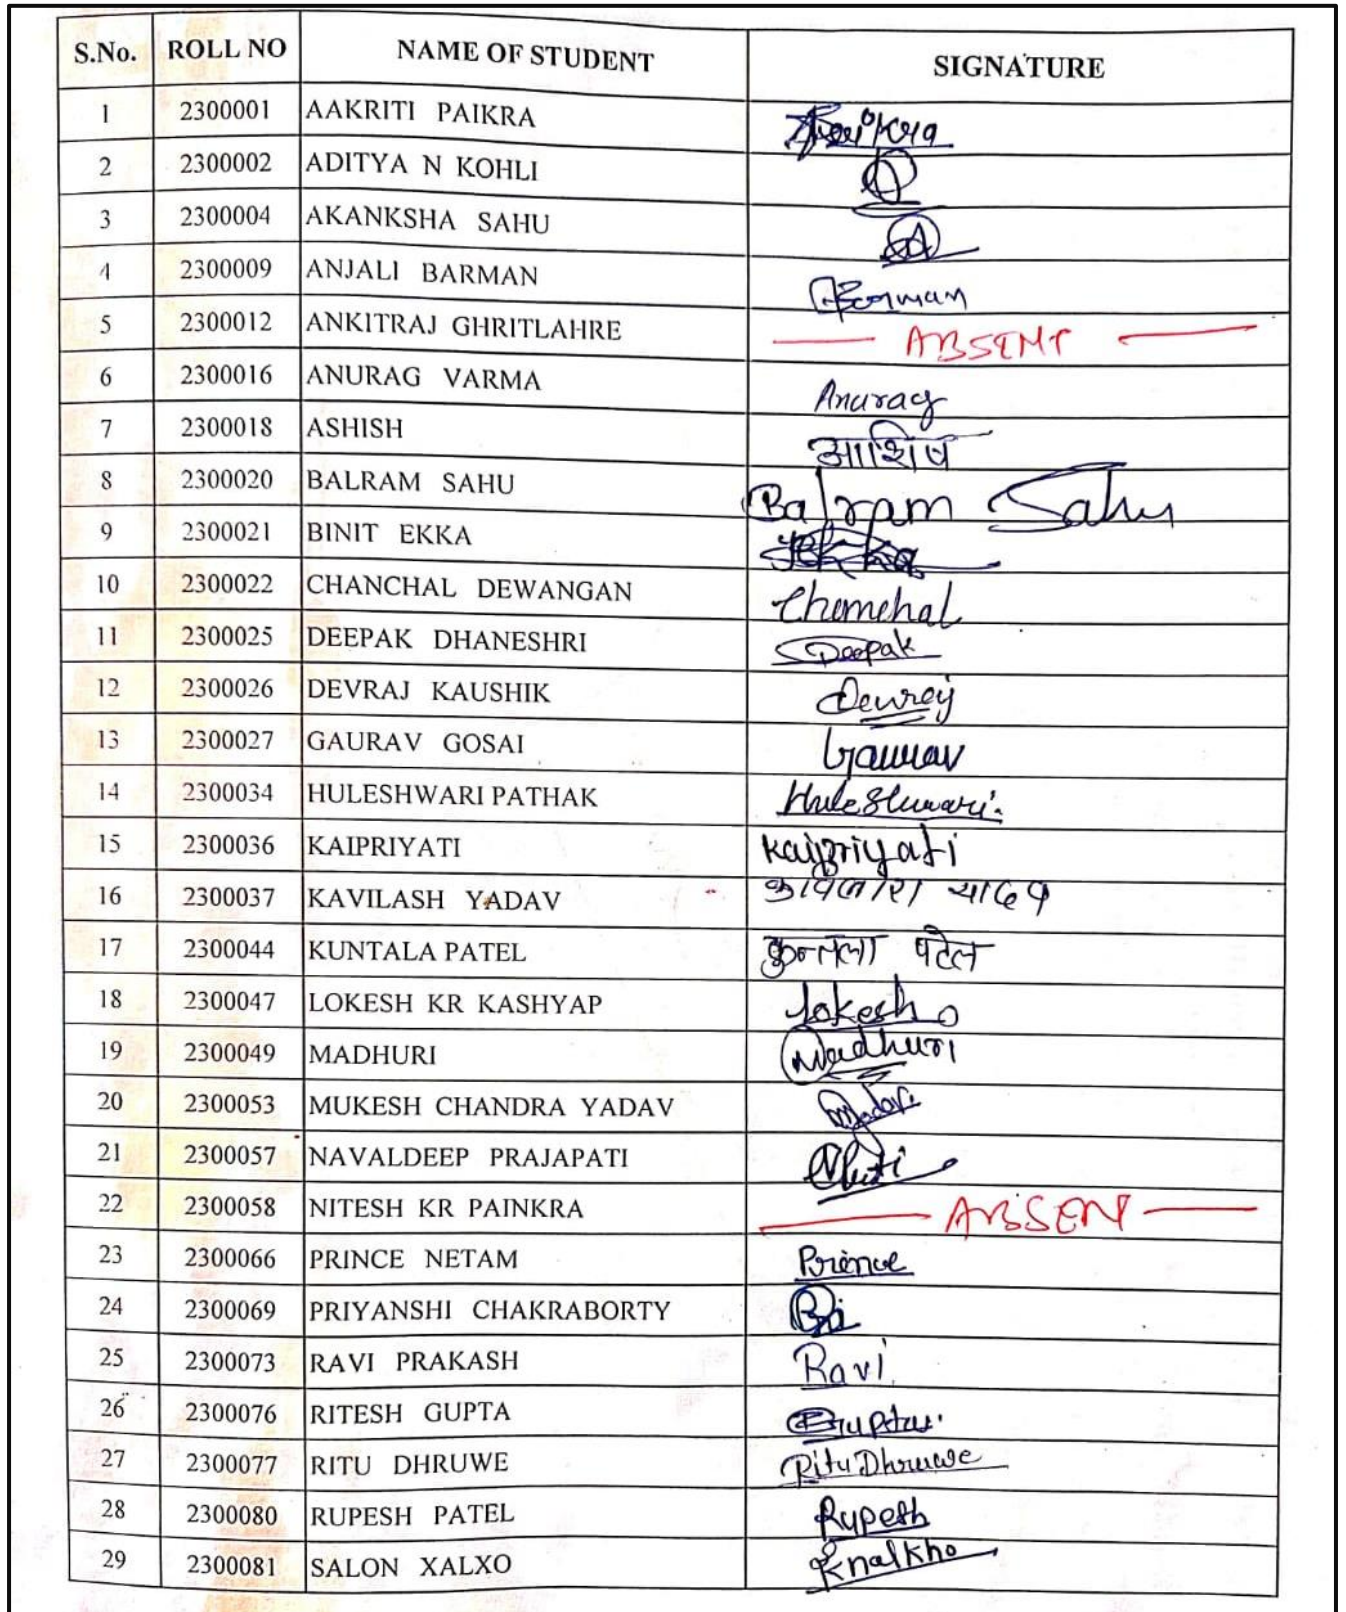 S.No. ROLL NO NAME OF STUDENT SIGNATURE
1 2300001 AAKRITI PAIKRA
2 2300002 ADITYA N KOHLI
3 2300004 AKANKSHA SAHU
4 2300009 ANJALI BARMAN
5 2300012 ANKITRAJ GHRITLAHRE ABSENT
6 2300016 ANURAG VARMA Anurag
7 2300018 ASHISH आशिष
8 2300020 BALRAM SAHU Balram Sahu
9 2300021 BINIT EKKA
10 2300022 CHANCHAL DEWANGAN Chanchal
11 2300025 DEEPAK DHANESHRI Deepak
12 2300026 DEVRAJ KAUSHIK Devraj
13 2300027 GAURAV GOSAI Gaurav
14 2300034 HULESHWARI PATHAK Huleshwari
15 2300036 KAIPRIYATI Kaipriyati
16 2300037 KAVILASH YADAV
17 2300044 KUNTALA PATEL कुन्तला पटेल
18 2300047 LOKESH KR KASHYAP Lokesh
19 2300049 MADHURI Madhuri
20 2300053 MUKESH CHANDRA YADAV
21 2300057 NAVALDEEP PRAJAPATI
22 2300058 NITESH KR PAINKRA ABSENT
23 2300066 PRINCE NETAM Prince
24 2300069 PRIYANSHI CHAKRABORTY
25 2300073 RAVI PRAKASH Ravi
26 2300076 RITESH GUPTA Gupta
27 2300077 RITU DHRUWE Ritu Dhruwe
28 2300080 RUPESH PATEL Rupesh
29 2300081 SALON XALXO